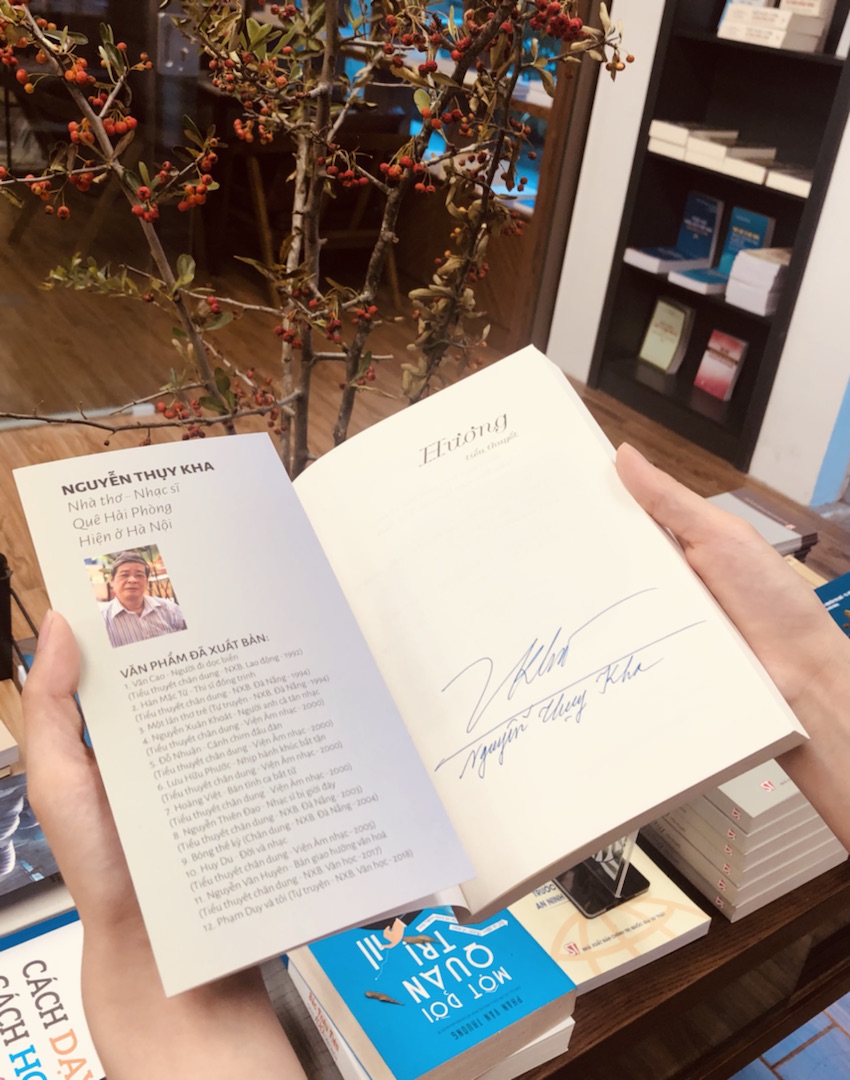 NGUYỄN THỤY KHA
Nhà thơ - Nhạc sĩ
Quê Hải Phòng
Hiện ở Hà Nội
VĂN PHẨM ĐÃ XUẤT BẢN:
1. Văn Cao - Người đi dọc biển
(Tiểu thuyết chân dung - NXB. Lao động - 1992)
2. Hàn Mặc Tử - Thi sĩ đồng trinh
(Tiểu thuyết chân dung - NXB. Đà Nẵng - 1994)
3. Một lần thơ trẻ (Tự truyện - NXB. Đà Nẵng - 1994)
4. Nguyễn Xuân Khoát - Người anh cả tân nhạc
(Tiểu thuyết chân dung - Viện Âm nhạc - 2000)
5. Đỗ Nhuận - Cánh chim đầu đàn
(Tiểu thuyết chân dung - Viện Âm nhạc - 2000)
6. Lưu Hữu Phước - Nhịp hành khúc bất tận
(Tiểu thuyết chân dung - Viện Âm nhạc - 2000)
7. Hoàng Việt - Bản tình ca bất tử
(Tiểu thuyết chân dung - Viện Âm nhạc - 2000)
8. Nguyễn Thiện Đạo - Nhạc sĩ bị giời đày
(Tiểu thuyết chân dung - NXB. Đà Nẵng - 2003)
9. Bóng thế kỷ (Chân dung - NXB. Đà Nẵng - 2004)
10. Huy Du - Đời và nhạc
(Tiểu thuyết chân dung - Viện Âm nhạc - 2005)
11. Nguyễn Văn Huyên - Bản giao hưởng văn hoá
(Tiểu thuyết chân dung - NXB. Văn học - 2017)
12. Phạm Duy và tôi (Tự truyện - NXB. Văn học - 2018)
Hương
tiểu thuyết
Kha
Nguyễn Thụy Kha
MỘT ĐỜI
QUẢN
TRỊ
PHAN VĂN TRƯỜNG
AN NINH
CÁCH DẠY
CÁCH